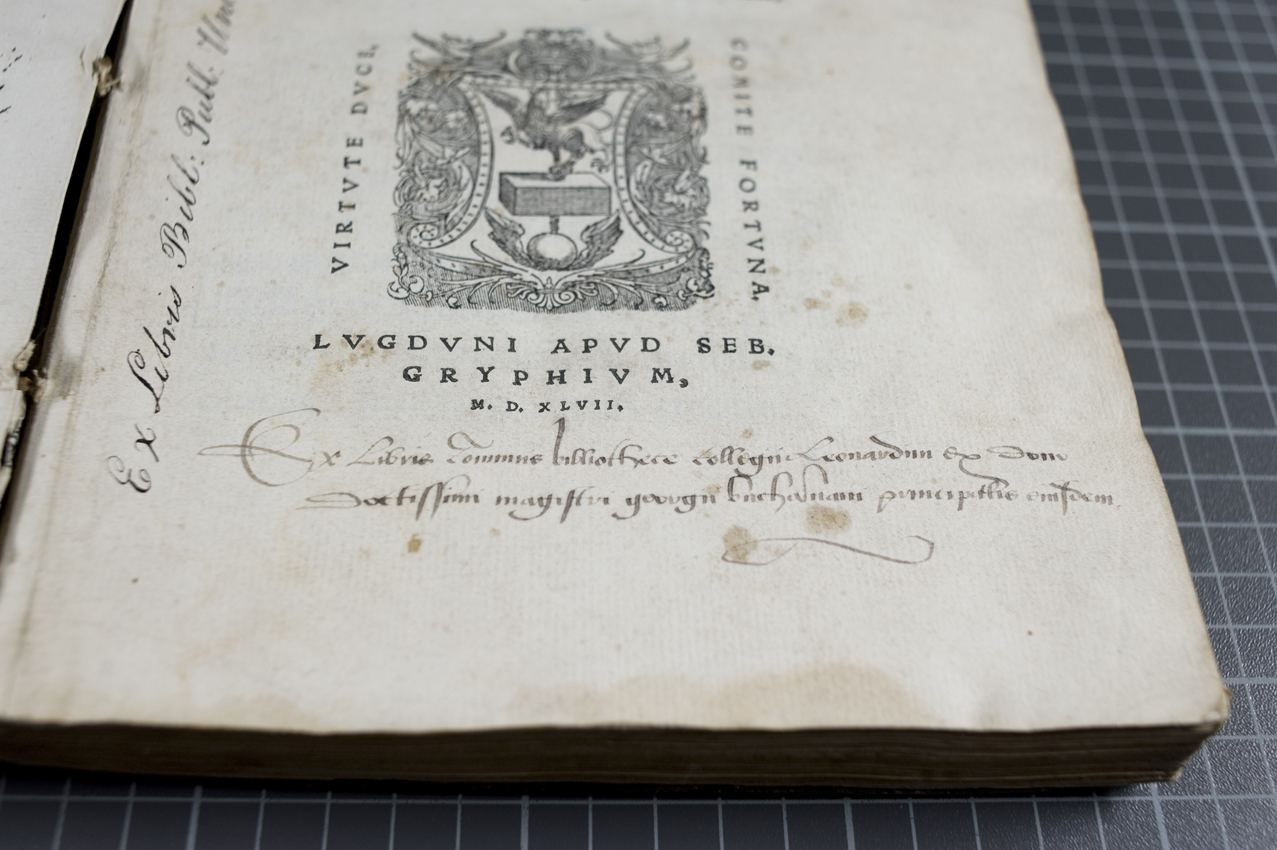 VIRTVTE DVCE,
COMITE FORTVNA.
LVGDVNI APVD SEB.
GRYPHIVM,
M. D. XLVII.
Ex Libris Bibl: Publ:
Ex Libris Communis bibliothece collegii Leonardini ex Dono
Doctissimi magistri georgii buchanani principalis eiusdem